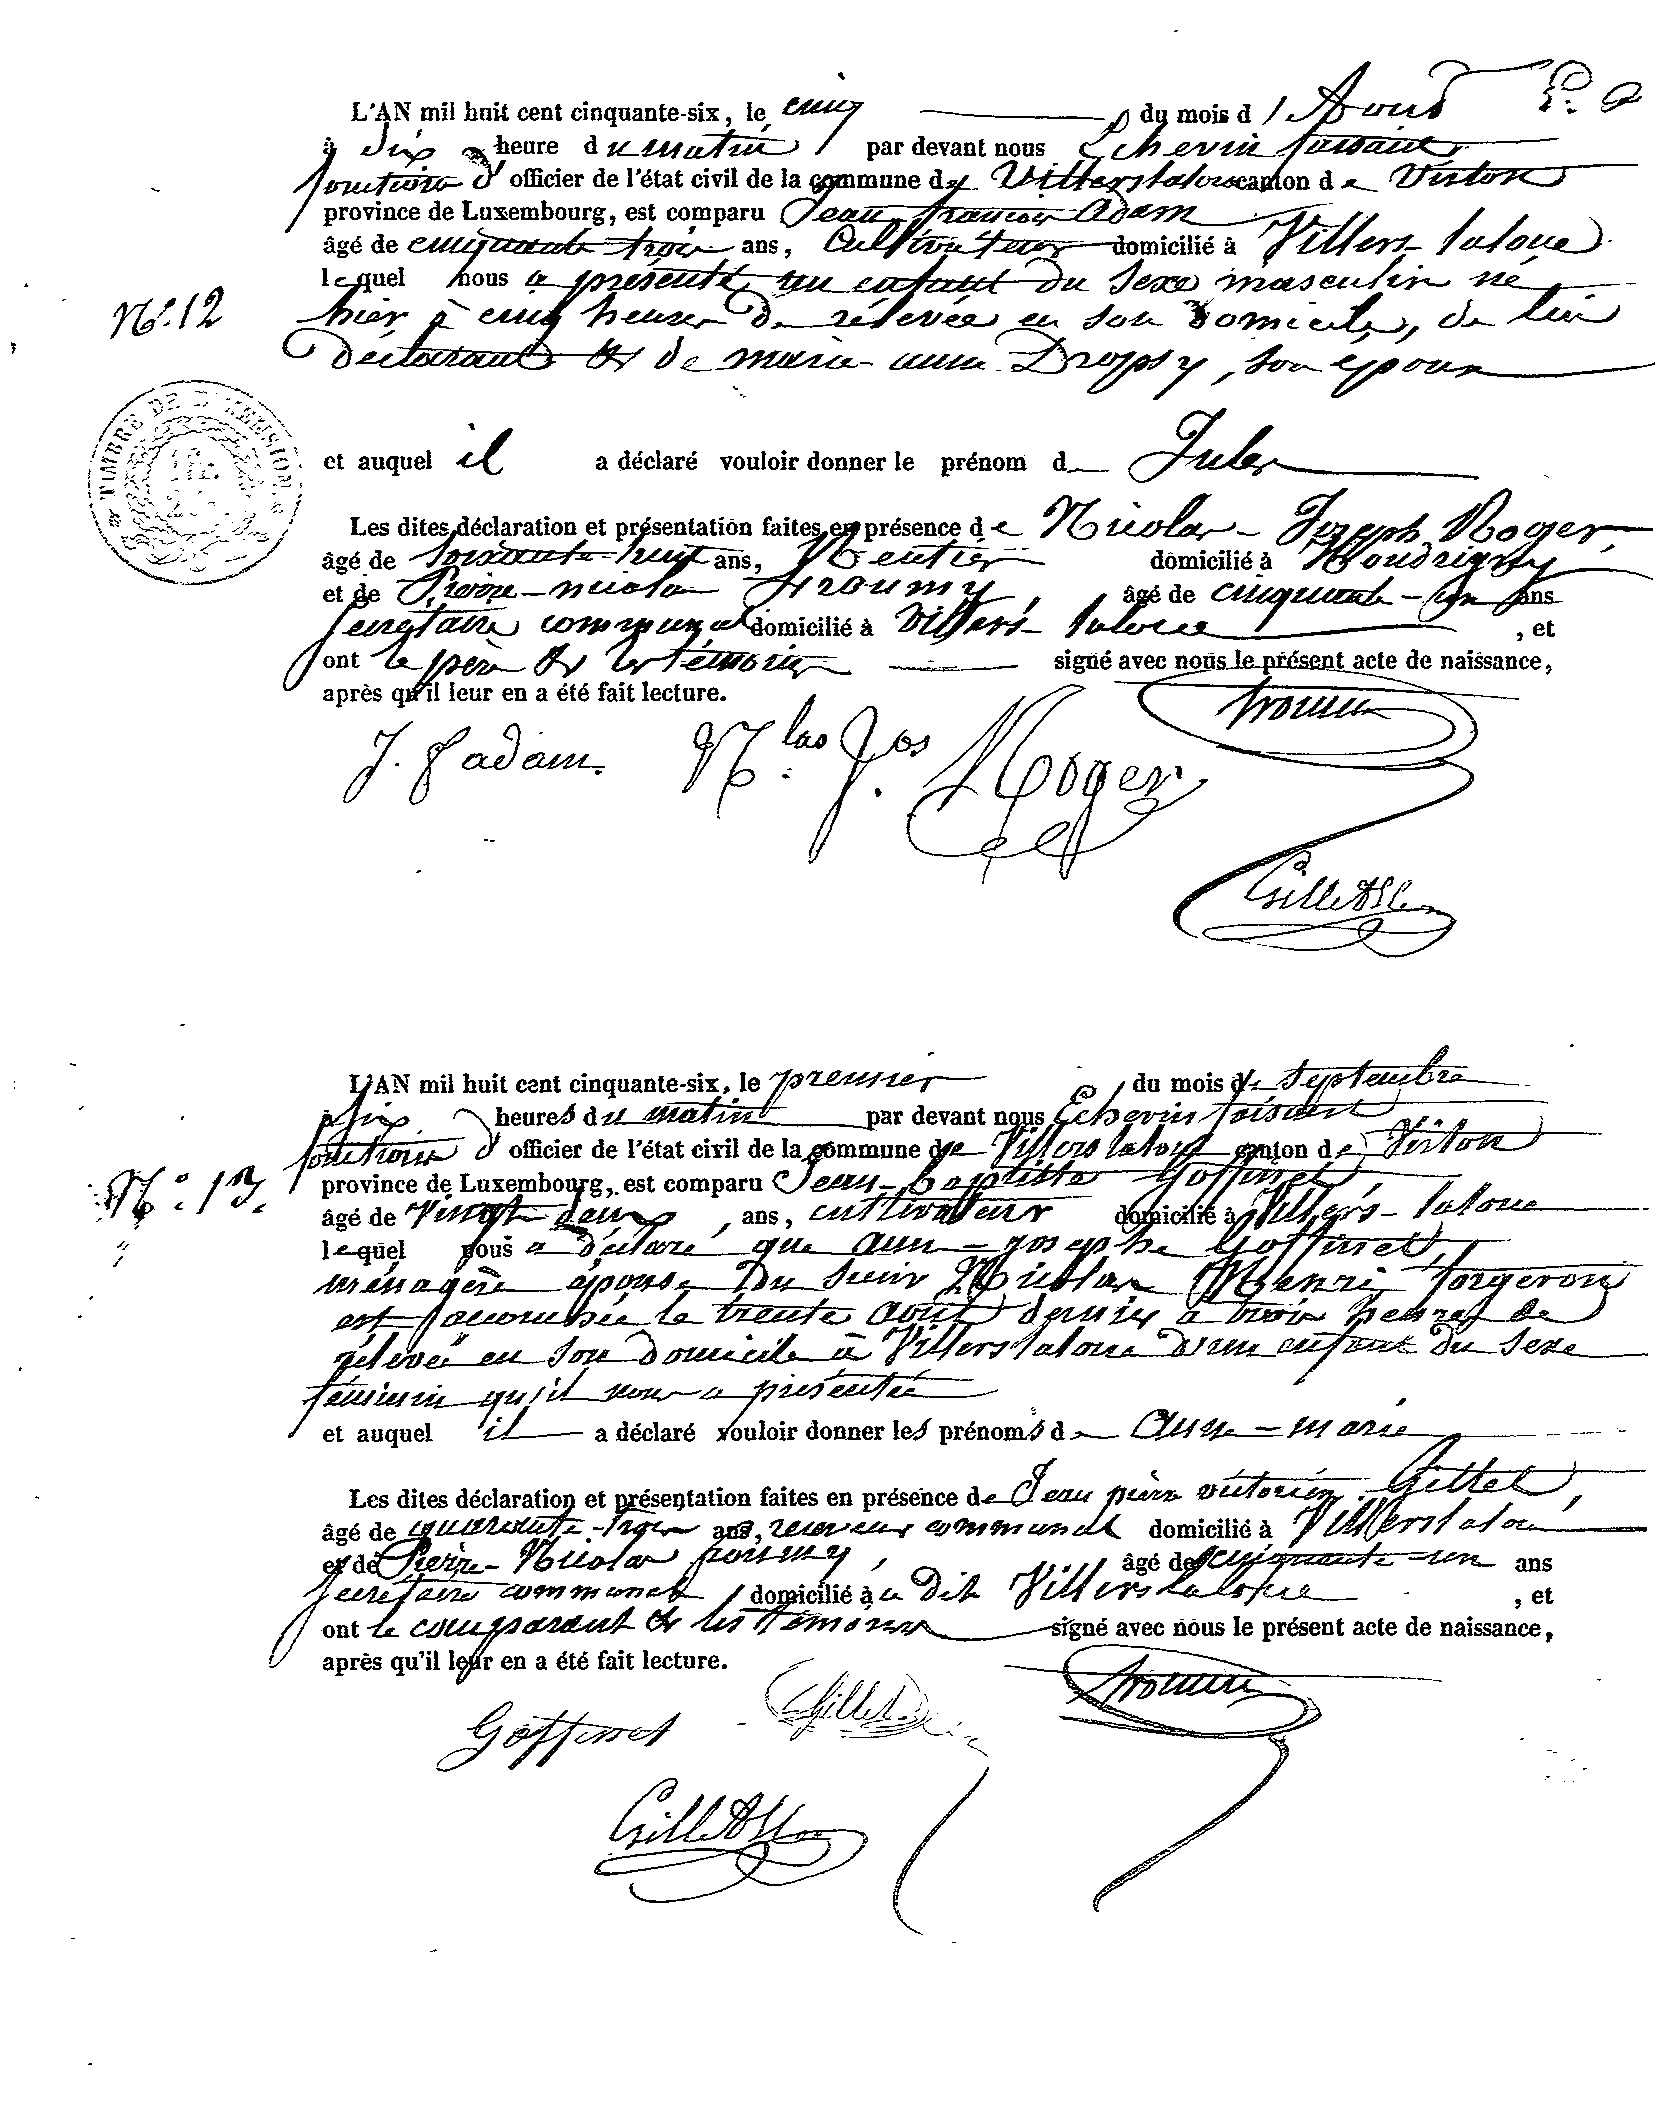 L'AN mil huit cent cinquante-six, le cinq du mois d'Aous
à dix heure du matin par devant nous Echevin faisant
fonctions d'officier de l'état civil de la commune de Villerslaloue canton de Virton
province de Luxembourg, est comparu Jean françois Adam
âgé de cinquante trois ans, Cultivateur domicilié à Villers-laloue
lequel nous a présenté un enfant du sexe masculin né
N.° 12
hier à cinq heures de rélevée en son domicile, de lui
déclarant & de marie-anne Dropsy, son epouse
TIMBRE DE DIMENSION
et auquel il a déclaré vouloir donner le prénom d Jules
Les dites déclaration et présentation faites en présence de Nicolas-Joseph Roger,
âgé de soixante-huit ans, Rentier domicilié à Houdrigny
et de Pierre-nicolas froumy, âgé de cinquante-un ans
Secrétaire communal domicilié à Villers-laloue, et
ont le père & les témoins signé avec nous le présent acte de naissance,
après qu'il leur en a été fait lecture.
J. f adam. N.las J.os Roger
L'AN mil huit cent cinquante-six, le premier du mois de Septembre
à dix heures du matin par devant nous Echevin faisant
fonctions d'officier de l'état civil de la commune de Villers laloue canton de Virton
N.° 13.
province de Luxembourg, est comparu Jean-baptiste Goffinet
âgé de Vingt deux ans, cultivateur domicilié à Villers-laloue
lequel nous a déclaré que anne-josephe Goffinet,
ménagère épouse du sieur Nicolas Henri forgeron
est accouchée le trente août dernier à trois heures de
rélevée en son domicile à Villerslaloue d'un enfant du sexe
féminin qu'il nous a présentée
et auquel il a déclaré vouloir donner les prénoms de Anne-marie
Les dites déclaration et présentation faites en présence de Jean pierre victorien Gillet,
âgé de quarante-trois ans, receveur communal domicilié à Villerslaloue
et de Pierre-Nicolas froumy, âgé de cinquante-un ans
Secrétaire communal domicilié à u dit Villerslaloue, et
ont le comparant & les témoins signé avec nous le présent acte de naissance,
après qu'il leur en a été fait lecture.
Goffinet Gillet